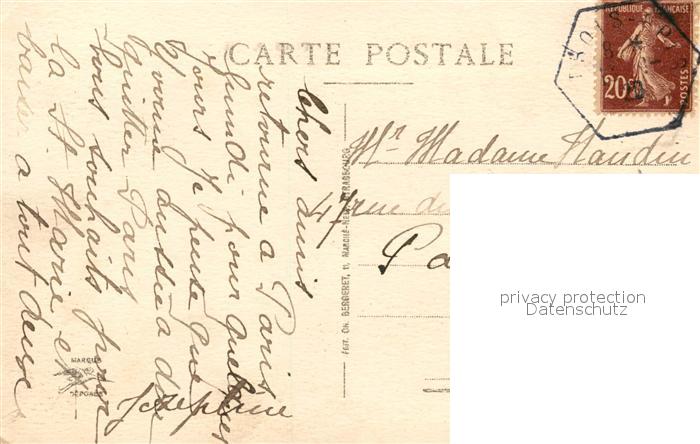 CARTE POSTALE
RÉPUBLIQUE FRANÇAISE
20c
POSTES
Chers amis
retourne a Paris
lundi pour quelques
jours je pense que
vous aussi a de
quitter Paris
bons souhaits pour
la St. Marie e
baiser a tout deux
Josephine
Mr Madame Naudin
47 rue de
Pa
EDIT. CH. BERGERET, 11, MARCHÉ-NEUF, STRASBOURG
MARQUE
DÉPOSÉE
privacy protection
Datenschutz